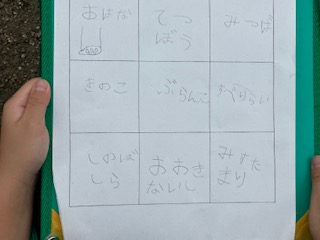 おはな
てつ
ぼう
みつば
きのこ
ぶらんこ
すべりだい
しのば
しら
おおき
ないし
みずた
まり